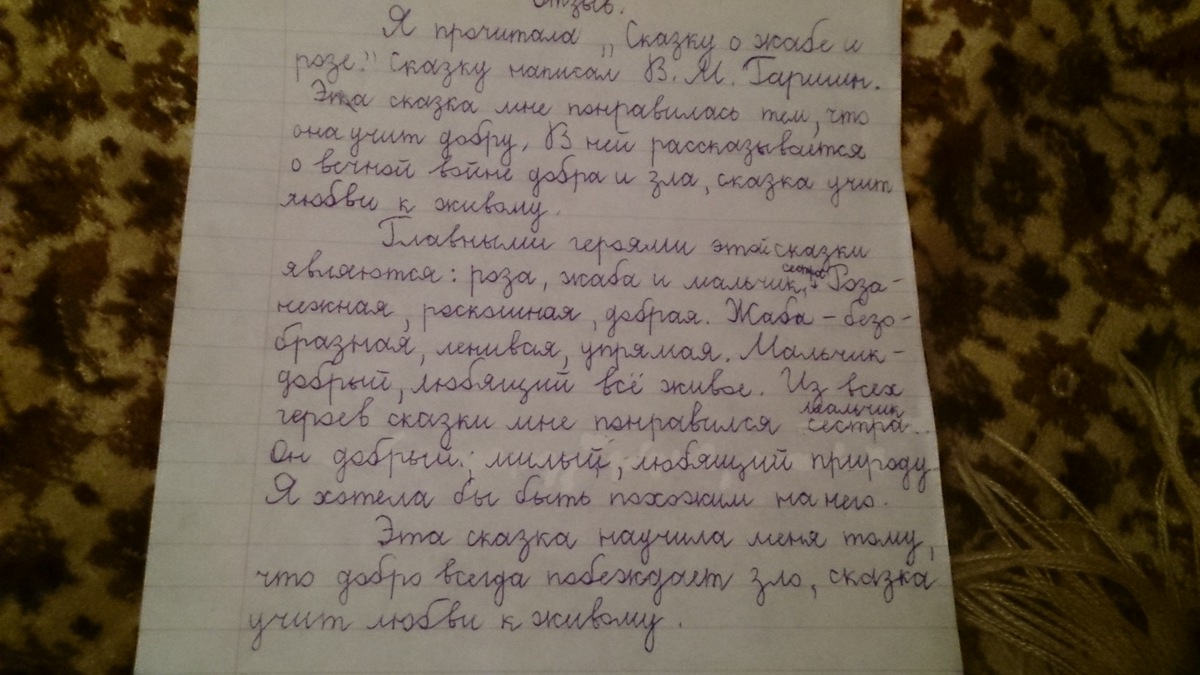 Отзыв.
Я прочитала „Сказку о жабе и
розе." Сказку написал В. М. Гаршин.
Эта сказка мне понравилась тем, что
она учит добру. В ней рассказывается
о вечной войне добра и зла, сказка учит
любви к живому.
Главными героями этой сказки
сестра
являются: роза, жаба и мальчик, Роза-
нежная, роскошная, добрая. Жаба - безо-
бразная, ленивая, упрямая. Мальчик-
добрый, любящий всё живое. Из всех
мальчик
героев сказки мне понравился сестра.
Он добрый, милый, любящий природу.
Я хотела бы быть похожим на него.
Эта сказка научила меня тому,
что добро всегда побеждает зло, сказка
учит любви к живому.